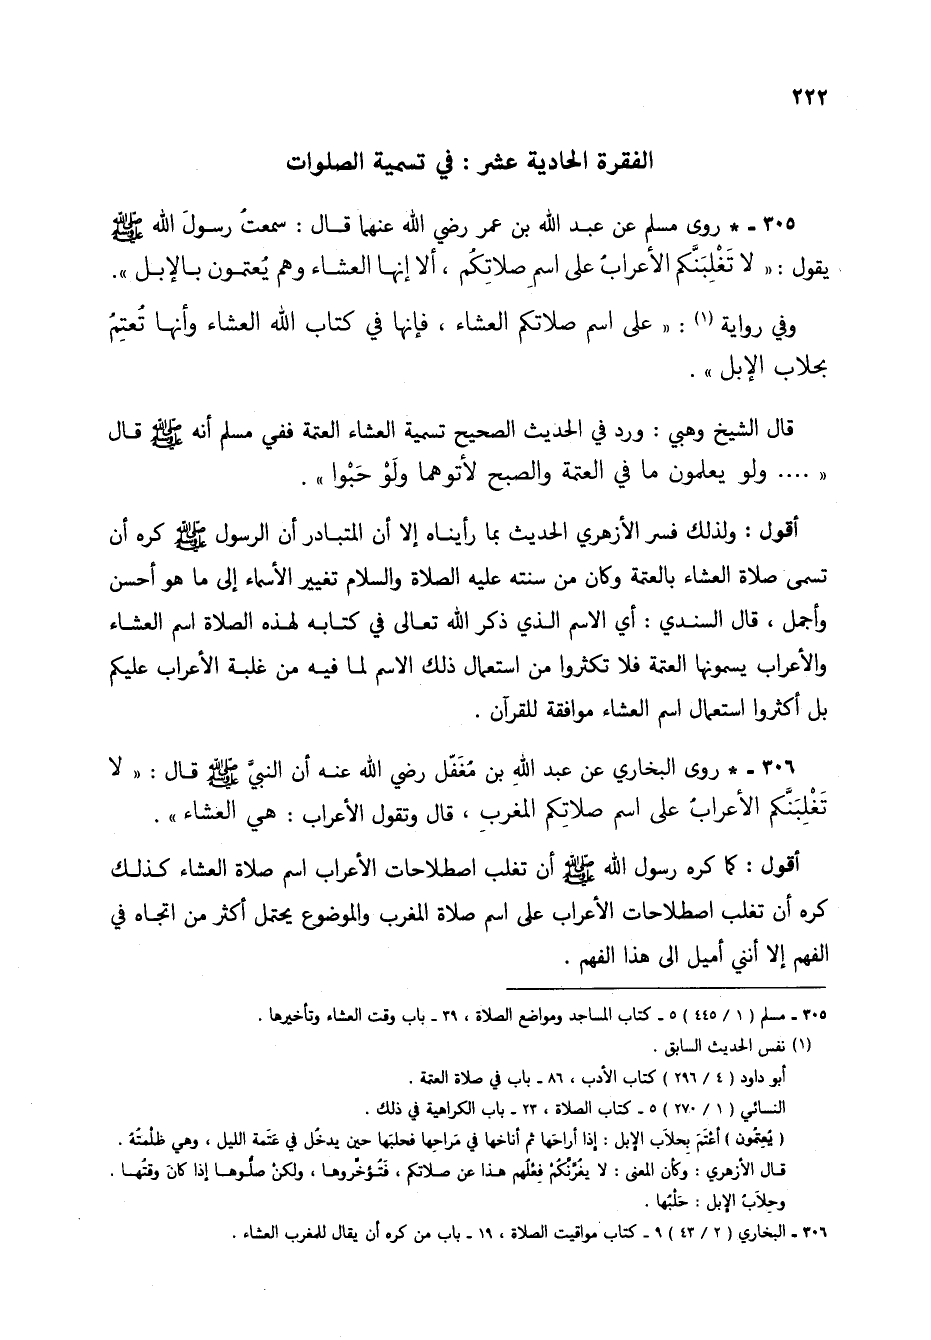 ٢٢٢
الفقرة الحادية عشر : في تسمية الصلوات
٣٠٥ - * روى مسلم عن عبد الله بن عمر رضي الله عنهما قال : سمعتُ رسولَ الله ﷺ
يقول : « لا تَغْلِبَنَّكم الأعرابُ على اسمِ صلاتِكُم ، ألا إنها العشاء وهم يُعتمون بالإبل ».
وفي رواية (١) : « على اسم صلاتكم العشاء ، فإنها في كتاب الله العشاء وأنها تُعتِمُ
بحلاب الإبل » .
قال الشيخ وهبي : ورد في الحديث الصحيح تسمية العشاء العتمة ففي مسلم أنه ﷺ قال
« .... ولو يعلمون ما في العتمة والصبح لأتوهما ولَوْ حَبْوا » .
أقول : ولذلك فسر الأزهري الحديث بما رأيناه إلا أن المتبادر أن الرسول ﷺ كره أن
تسمى صلاة العشاء بالعتمة وكان من سنته عليه الصلاة والسلام تغيير الأسماء إلى ما هو أحسن
وأجمل ، قال السندي : أي الاسم الذي ذكر الله تعالى في كتابه لهذه الصلاة اسم العشاء
والأعراب يسمونها العتمة فلا تكثروا من استعمال ذلك الاسم لما فيه من غلبة الأعراب عليكم
بل أكثروا استعمال اسم العشاء موافقة للقرآن .
٣٠٦ - * روى البخاري عن عبد اللهِ بن مُغَفّل رضي الله عنه أن النبيَّ ﷺ قال : « لا
تَغْلِبَنَّكم الأعرابُ على اسم صلاتِكم المغربِ ، قال وتقول الأعراب : هي العشاء » .
أقول : كما كره رسول الله ﷺ أن تغلب اصطلاحات الأعراب اسم صلاة العشاء كذلك
كره أن تغلب اصطلاحات الأعراب على اسم صلاة المغرب والموضوع يحتمل أكثر من اتجاه في
الفهم إلا أنني أميل الى هذا الفهم .
٣٠٥ - مسلم ( ١ / ٤٤٥ ) ٥ - كتاب المساجد ومواضع الصلاة ، ٣٩ - باب وقت العشاء وتأخيرها .
(١) نفس الحديث السابق .
أبو داود ( ٤ / ٢٩٦ ) كتاب الأدب ، ٨٦ - باب في صلاة العتمة .
النسائي ( ١ / ٢٧٠ ) ٥ - كتاب الصلاة ، ٢٣ - باب الكراهية في ذلك .
( يُعتِمُون ) أعْتَمَ بِحلابِ الإبل : إذا أراحَها ثم أناخها في مَراحِها فحلبَها حين يدخُل في عَتَمة الليل ، وهي ظلْمتُهُ .
قال الأزهري : وكأن المعنى : لا يغُرَّنْكُمْ فِعْلُهم هذا عن صلاتكم ، فَتُؤخِّروها ، ولكنْ صلُّوها إذا كانَ وقتُها .
وحِلابُ الإبل : حَلْبُها .
٣٠٦ - البخاري ( ٢ / ٤٣ ) ٩ - كتاب مواقيت الصلاة ، ١٩ - باب من كره أن يقال للمغرب العشاء .